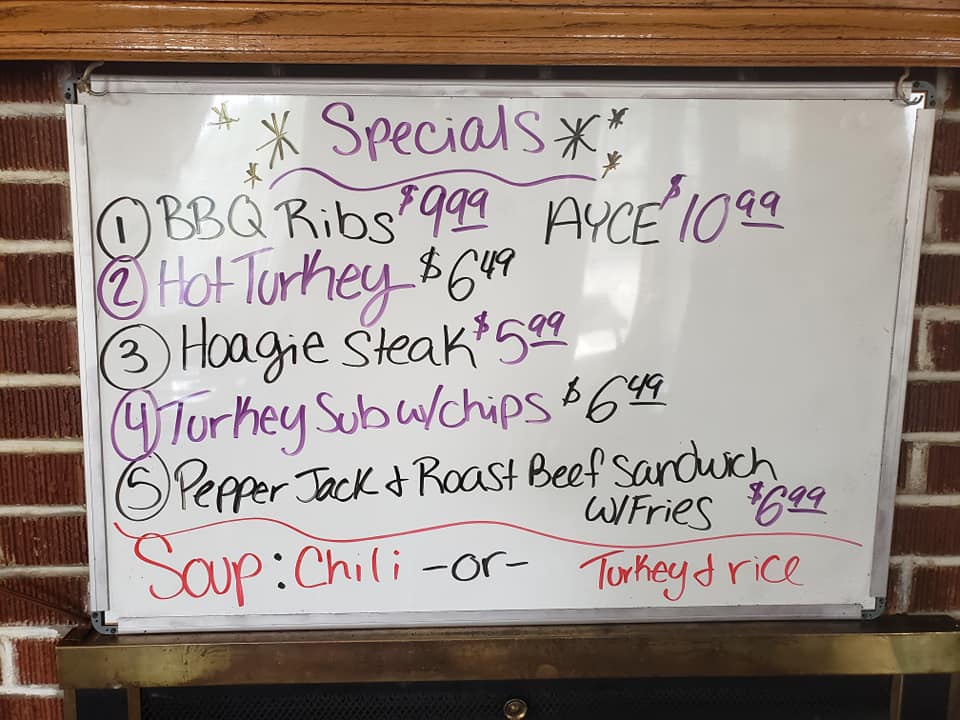 Specials
1 BBQ Ribs $9.99 AYCE $10.99
2 Hot Turkey $6.49
3 Hoagie Steak $5.99
4 Turkey Sub w/chips $6.49
5 Pepper Jack & Roast Beef Sandwich
w/Fries $6.99
Soup: Chili -or- Turkey & rice